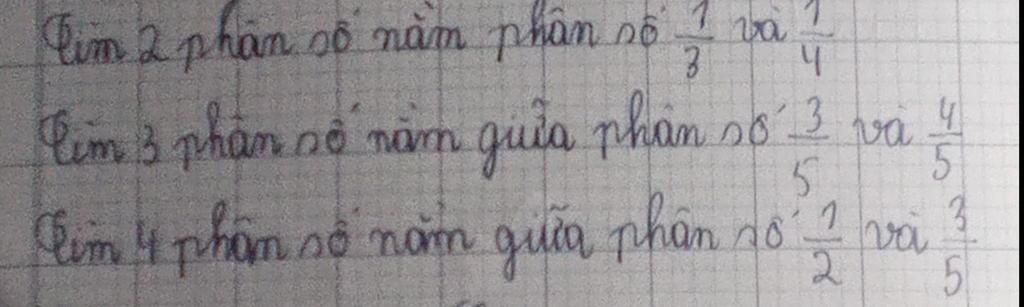 Tìm 2 phân số nằm phân số 1/3 và 1/4
Tìm 3 phân số nằm giữa phân số 3/5 và 4/5
Tìm 4 phân số nằm giữa phân số 1/2 và 3/5